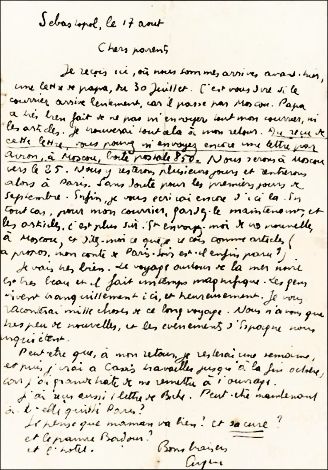 Sebastopol, le 17 aout
Chers parents
Je reçois ici, où nous sommes arrivés avant-hier,
une lettre de papa, du 30 Juillet. C'est vous dire si le
courrier arrive lentement, car il passe par Moscou. Papa
a très bien fait de ne pas m'envoyer tout mon courrier, ni
les articles. Je trouverai tout cela à mon retour. Au reçu de
cette lettre, vous pouvez m'envoyer encore une lettre par
avion, à Moscou, boite postale 850. Nous serons à Moscou
vers le 25. Nous y resterons plusieurs jours et rentrerons
alors à Paris. Sans doute pour les premiers jours de
Septembre. Enfin, je vous écrirai encore d'ici là. En
tout cas, pour mon courrier, gardez-le maintenant, et
les articles, c'est plus sûr. Et envoyez-moi de vos nouvelles,
à Moscou, et dites-moi ce que je reçois comme articles (
à propos, mon conte de Paris-Soir est-il enfin paru?)
Je vais très bien. Le voyage autour de la mer noire
est très beau et il fait un temps magnifique. Les gens
vivent tranquillement ici, et heureusement. Je vous
raconterai mille choses de ce long voyage. Nous n'avons que
très peu de nouvelles, et les évènements d'Espagne nous
inquiètent.
Peut-être que, à mon retour, je resterai une semaine,
et puis j'irai à Cassis travailler jusqu'à la fin octobre,
car j'ai grand hâte de me remettre à l'ouvrage.
J'ai reçu aussi 1 lettre de Peut-être maintenant
a-t-elle quitté Paris?
Je pense que maman va bien? et sa cure?
et le pauvre
et l'hotel. Bons baisers
Eugène